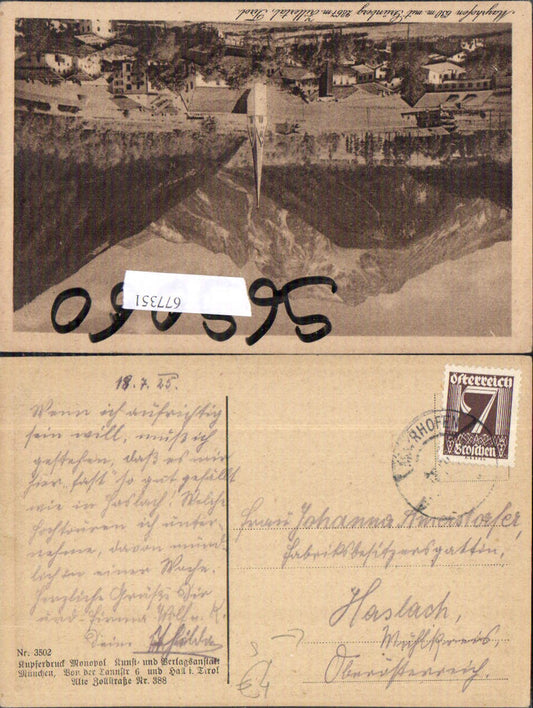 Mayrhofen 630 m mit Grünberg 2867 m Zillertal, Tirol
677351
18. 7. 25.
Wenn ich aufrichtig
sein will, muß ich
gestehen, daß es mir
hier "fast" so gut gefällt
wie in Haslach. Welche
Hochtouren ich unter-
nehme, davon münd-
lich in einer Woche.
Herzliche Grüße Dir
und Firma
Dein
Österreich
7
Groschen
MAYRHOFEN
Frau Johanna
Fabriksbesitzersgattin,
Haslach,
Mühlkreis,
Oberösterreich.
Nr. 3502
Kupferdruck Monopol Kunst- und Verlagsanstalt
München, Von der Tannstr 6 und Hall i. Tirol
Alte Zollstraße Nr. 388